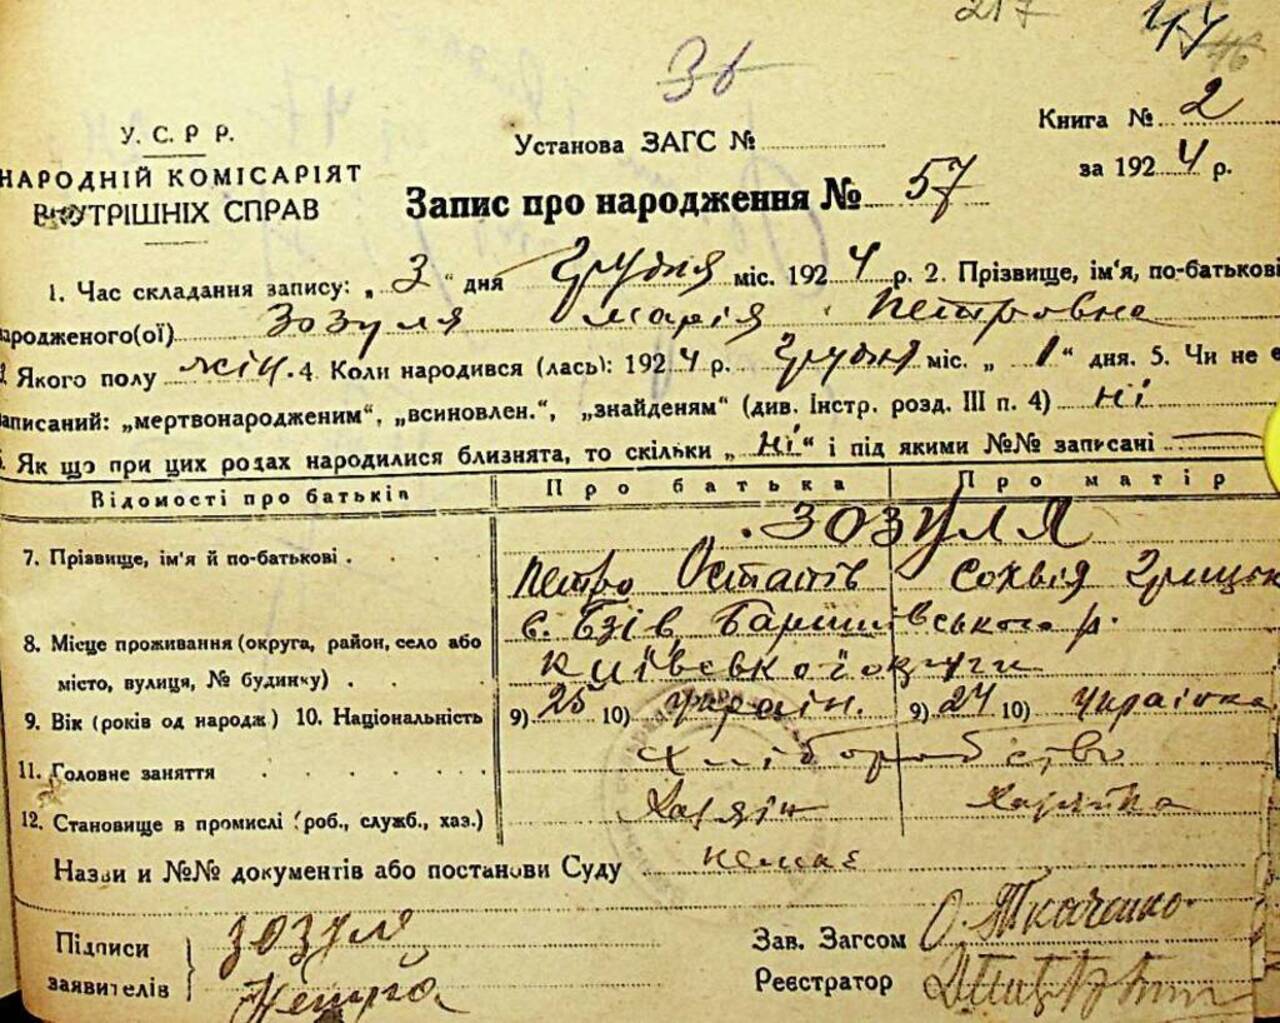 217 44 46
Зв
У. С. Р Р.
НАРОДНІЙ КОМІСАРІЯТ
ВНУТРІШНІХ СПРАВ
Установа ЗАГС №
Книга № 2
за 1924 р.
Запис про народження № 57
1. Час складання запису: „3“ дня Грудня міс. 1924 р. 2. Прізвище, ім'я, по-батькові
народженого(ої) Зозуля Марія Петровна
Якого полу жін. 4 Коли народився (лась): 1924 р. Грудня міс. „1“ дня. 5. Чи не є
записаний: „мертвонародженим“, „всиновлен.“, „знайденям“ (див. Інстр. розд. III п. 4) ні
Як що при цих родах народилися близнята, то скільки „ні“ і під якими №№ записані —
Відомості про батьків Про батька Про матір
7. Прізвище, ім'я й по-батькові . ЗОЗУЛЯ
Петро Остапів Сохвія Грицьк
8. Місце проживання (округа, район, село або
місто, вулиця, № будинку) .
с. Бзів, Баришівського р.
Київської округи
9. Вік (років од народж) 10. Національність 9) 25 10) україн. 9) 24 10) Українка
11. Головне заняття Хліборобство
12. Становище в промислі (роб., служб., хаз.) Хазяїн Хазяйка
Назви и №№ документів або постанови Суду немає
Підписи
заявителів
Зозуля
Зав. Загсом О. Ткаченко
Реєстратор